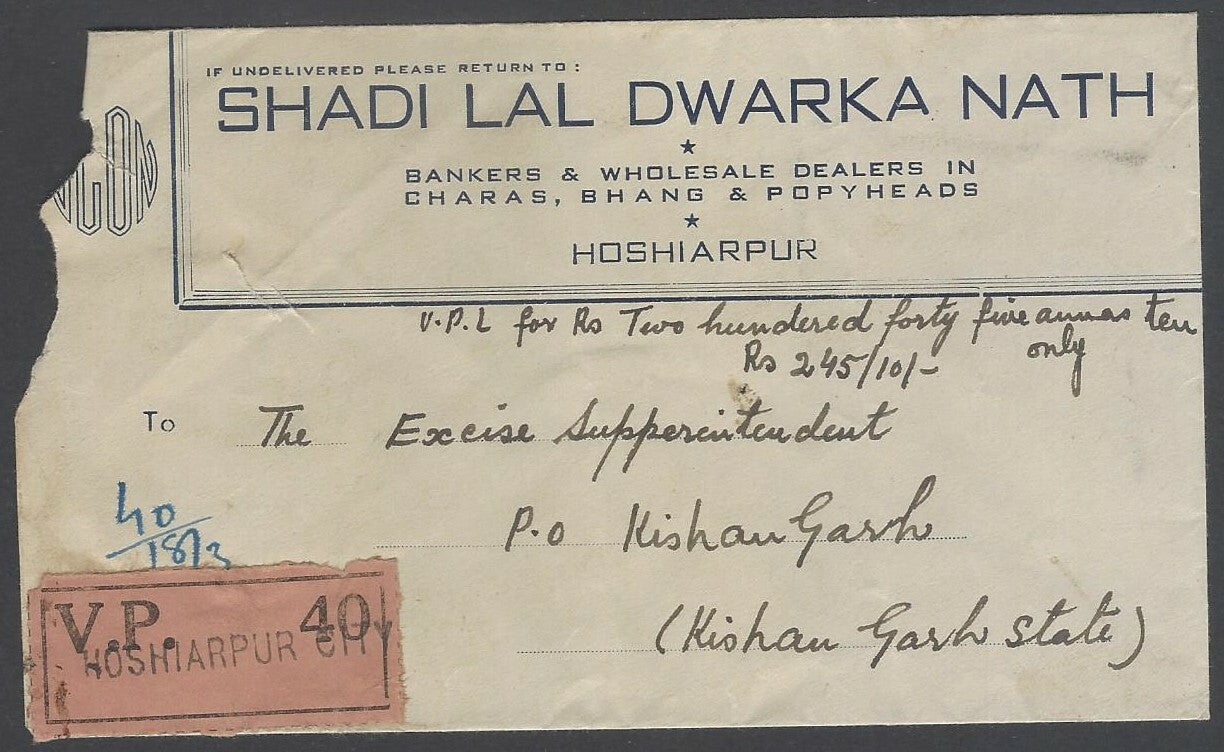 IF UNDELIVERED PLEASE RETURN TO :
SHADI LAL DWARKA NATH
BANKERS & WHOLESALE DEALERS IN
CHARAS, BHANG & POPYHEADS
HOSHIARPUR
V.P.L for Rs Two hundered forty five annas ten
only
Rs 245/10/-
To The Excise Supperintendent
P.o Kishan Garh
(Kishan Garh State)
40
18/3
V.P. 40
HOSHIARPUR CITY